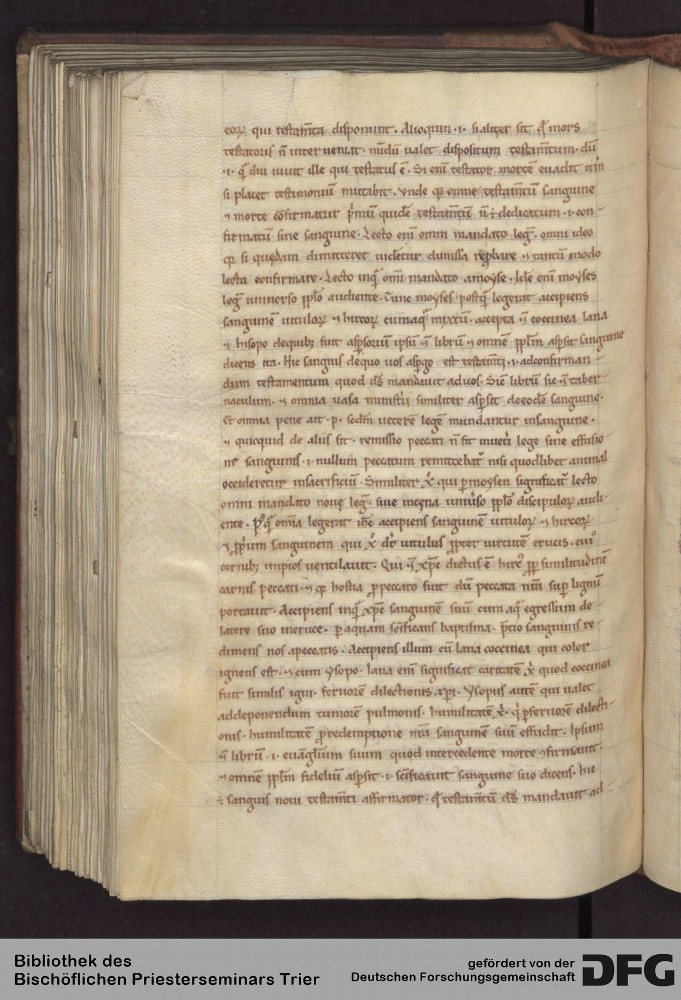 eorꝝ qui testam̄ta disponunt. Alioquin .i. si aliter sit q̄ mors
testatoris n̄ interveniat. nūdū valet dispositum testam̄tum. dū
.i. q̄ diu vivit ille qui testatus ē. Si enī testator mortē evadit
si placet testimoniū mutabit. Vnde qr omne testam̄tū sanguine
⁊ morte cōfirmatur p̄mū quidē testam̄tū n̄ ē dedicatum .i. con-
firmatū sine sanguine. Lecto enī omni mandato leḡ. omni ideo
qr si quędam dimitteret videretur dimissa ⁊ tantū modo
lecta confirmare. Lecto inq̄ omī mandato amoyse. Idē enī moyses
leḡ universo pp̄lo audiente. Tunc moyses postq̄ legerat accipiens
sanguinē vitulorꝝ ⁊ hircorꝝ cum aq̄ mixtū. accepta ⁊ coccinea lana
⁊ hisopo de quib; fuit asp̄sorium ipsū ⁊ librū ⁊ omnē pp̄lm̄ asp̄sit sanguine
dicens ita. Hic sanguis dequo vos asp̄go est testam̄ti .i. adconfirman-
dum testamentum quod dn̄s mandavit advos. Sic̄ librū sic ⁊ taber-
naculum. ⁊ omnia vasa ministerii similiter asp̄sit deeodē sanguine.
Et omnia pene ait .p. scdm̄ veterē legē mundantur insanguine.
⁊ quicquid de aliis sit. remissio peccati n̄ fit inveti lege sine effusio-
ne sanguinis .i. nullum peccatum remittebat nisi quodlibet animal
occideretur insacrificiū. Similiter x̄ qui p̄ moysen significat lecto
omni mandato novę leḡ. sive incena univ̄so pp̄lo discipulorꝝ audi-
ente. p̄q̄ om̄ia legerit accipiens sanguinē vitulorꝝ ⁊ hircorꝝ
⁊ pp̄rium sanguinem qui x̄ dr̄ vitulus pp̄ter virtutē crucis. cui⁹
cornib; impios ventilavit. Qui ⁊ xp̄c dictus ē hirc⁹ pp̄ similitudinē
carnis peccati ⁊ qr hostia p̄peccato fuit dū peccata nr̄a sup̄ lignū
portavit. Accipiens inq̄ xp̄c sanguinē suū cum aq̄ egressum de-
latere suo incruce. p̄ aquam sc̄ificans baptisma. p̄cio sanguinis re-
dimens nos apeccatis. Accipiens illum cū lana coccinea qui color
igneus est. ⁊ cum ysopo. lana enī significat caritatē x̄ quod coccinea
fuit similis igni. fervorē dilectionis xp̄i. Ysopus autē qui valet
addeponendum tumorē pulmonis. humilitatē x̄. q̄ p̄fervorē dilecti-
onis. humilitatē p̄ redemptione nr̄a sanguinē suū effudit. Ipsum
⁊ librū .i. evāgelium suum quod intercedente morte ꝯfirmavit.
⁊ omnē pp̄lm̄ fidelium asp̄sit .i. sc̄ificavit sanguine suo dicens. hic
ē sanguis novi testam̄ti affirmator. q̄ testam̄tū dn̄s mandavit ad
Bibliothek des
Bischöflichen Priesterseminars Trier
gefördert von der
Deutschen Forschungsgemeinschaft
DFG